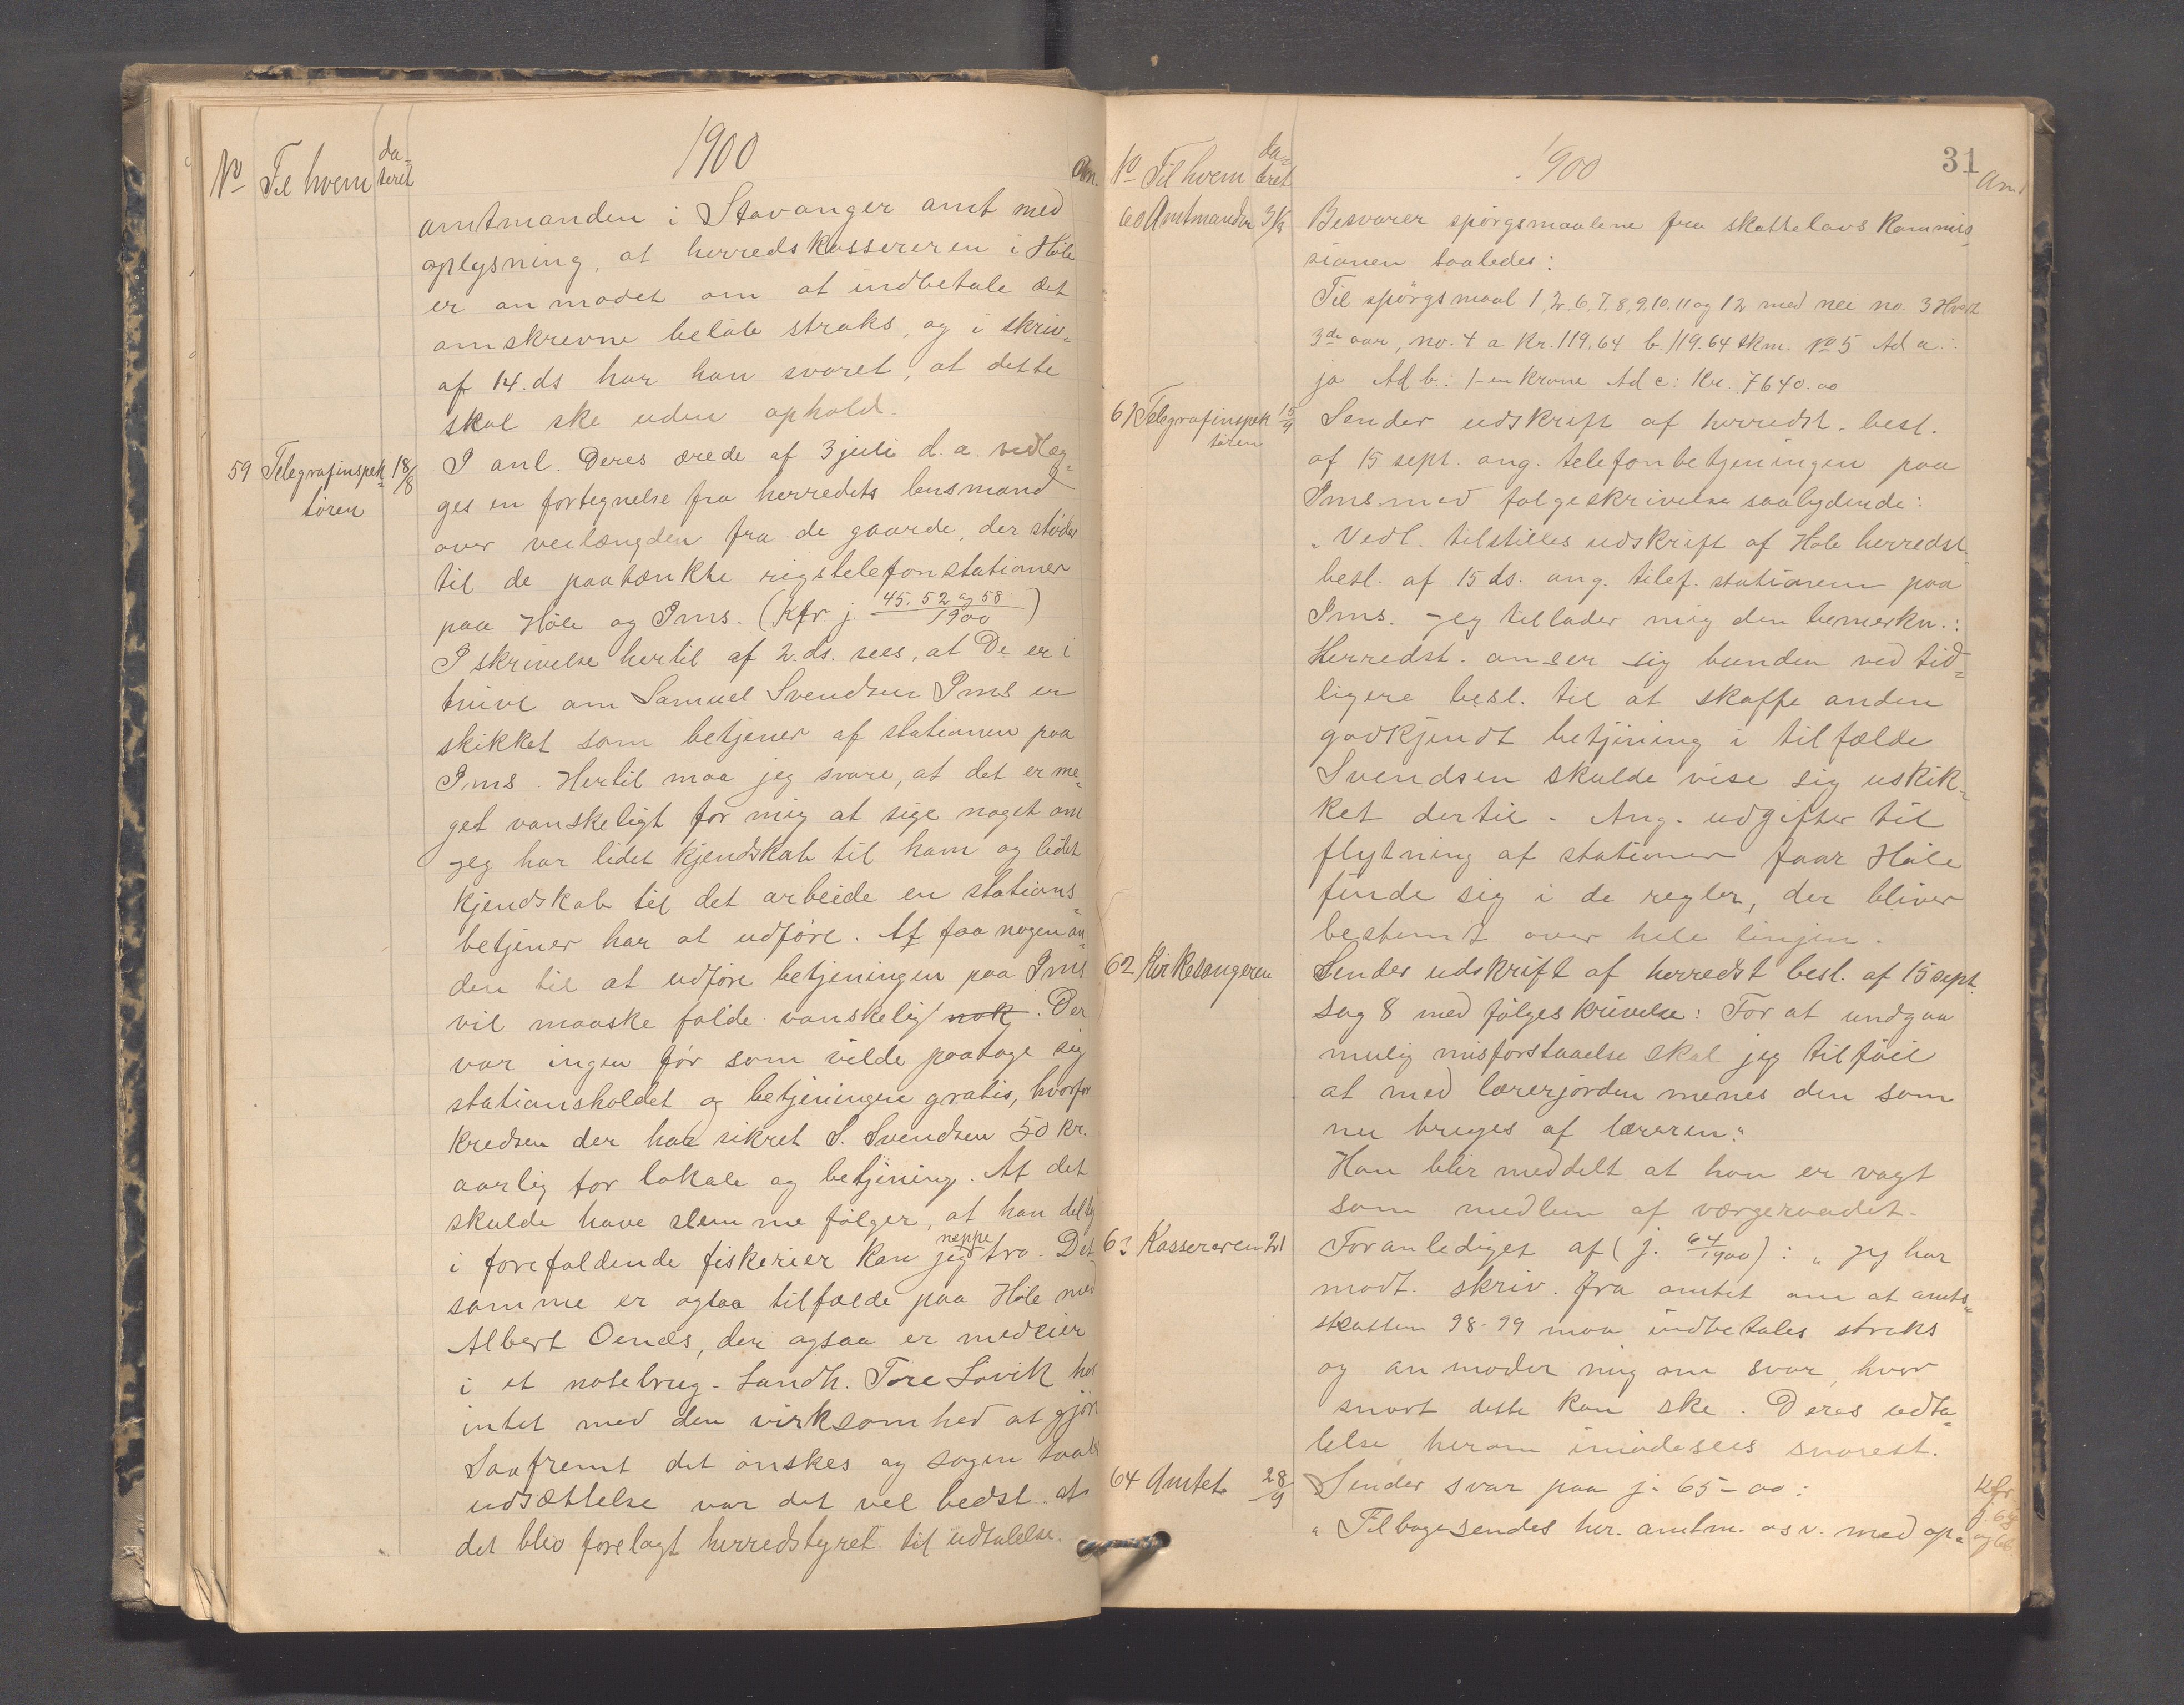 1900
No Til hvem da-
teret
An.
amtmanden i Stavanger amt med
oplysning, at herredskassereren i Höle
er anmodet om at indbetale det
omskrevne belöb straks, og i skriv.
af 14. ds har han svaret, at dette
skal ske uden ophold.
59 Telegrafinspek- 18/8 I anl. Deres ærede af 3 juli d. a. vedlæg-
tören ges en fortegnelse fra herredets lensmand
over veilængden fra de gaarde, der stöder
til de paatænkte rigstelefonstationer
paa Höle og Ims. (Kfr j. 45. 52 og 58/1900)
I skrivelse hertil af 2. ds. sees, at De er i
tvivl om Samuel Svendsen Ims er
skikket som betjener af stationen paa
Ims. Hertil maa jeg svare, at det er me-
get vanskeligt for mig at sige noget om
jeg har lidet kjendskab til ham og lidet
kjendskab til det arbeide en stations-
betjener har at udföre. At faa nogen an-
den til at udföre betjeningen paa Ims
vil maaske falde vanskelig nok. Der
var ingen för som vilde paatage sig
stationsholdet og betjeningen gratis, hvorfor
kredsen der har sikret S. Svendsen 50 kr.
aarlig for lokale og betjening. At det
skulde have slemme fölger, at han deltog
i forefaldende fiskerier kan jeg neppe tro. Det
samme er ogsaa tilfælde paa Höle med
Albert Oends, der ogsaa er medeier
i et notebrug. Landh. Tore Lövik har
intet med den virksomhed at gjöre
Saafremt det önskes og sagen taaler
udsættelse var det vel bedst at
det blev forelagt herredstyret til udtalelse.
31
1900
No Til hvem da-
teret
Anm
60 Amtmanden 3/9 Besvarer spörgsmaalene fra skattelovs kommis-
sionen saaledes:
Til spörgsmaal 1, 2, 6, 7, 8, 9, 10, 11 og 12 med nei no. 3 Hvert
3de aar, no. 4 a Kr. 119.64 b. 119.64 skm. No 5 Ad a:
ja Ad b: 1-en krone Ad c: Kr. 7640.00
61 Telegrafinspek 15/9 Sender udskrift af herredst. besl.
tören af 15 sept. ang. telefonbetjeningen paa
Ims med fölgeskrivelse saalydende:
"Vedl. tilstilles udskrift af Höle herredst.
besl. af 15 ds. ang. telef. stationen paa
Ims. Jeg tillader mig den bemerkn.:
Herredst. anser sig bunden ved tid-
ligere besl. til at skaffe anden
godkjendt betjening i tilfælde
Svendsen skulde vise sig uskik-
ket dertil. Ang. udgifter til
flytning af stationer faar Höle
finde sig i de regler, der bliver
bestemt over hele linjen.
62 Kirkesangeren Sender udskrift af herredst besl. af 15 sept.
sag 8 med fölgeskrivelse: For at undgaa
mulig misforstaaelse skal jeg tilföie
at med lærerjorden menes den som
nu bruges af læreren."
Han blir meddelt at han er valgt
som medlem af værgeraadet.
63 Kassereren 21 Foranlediget af (j. 64/1900): "Jeg har
modt. skriv. fra amtet om at amts-
skatten 98-99 maa indbetales straks
og anmoder mig om svar, hvor
snart dette kan ske. Deres udta-
lelse herom imödesees snarest.
64 Amtet 28/9 Sender svar paa j. 65-00:
"Tilbagesendes hr. amtm. osv. med op-
Kfr
j. 64
og 66